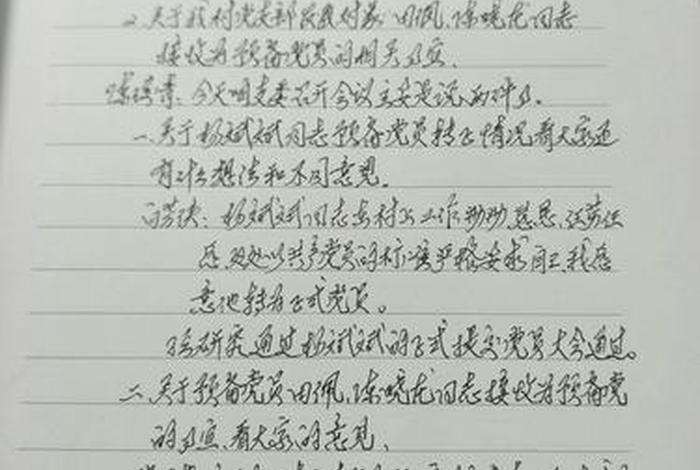 2.关于我村党支部发展对象田佩、陈晓龙同志
接收为预备党员的相关事宜.
今天咱支委召开会议主要是说两件事.
一.关于杨斌斌同志预备党员转正情况看大家还
有什么想法和不同意见.
杨斌斌同志在村上工作勤勤恳恳、任劳任
怨,处处以共产党员的标准严格要求自己,我愿
意他转为正式党员。
经研究通过杨斌斌的正式提交党员大会通过。
二、关于预备党员田佩、陈晓龙同志接收为预备党
的事宜、看大家的意见、